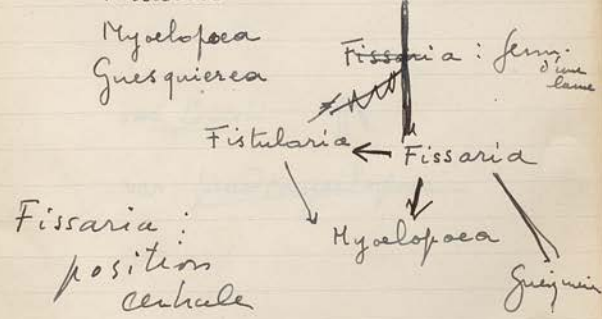 Myelopoea
Guesquierea
Fissaria : fem.
d'une
lame
Fistularia
Fissaria
Myelopoea
Fissaria :
position
centrale